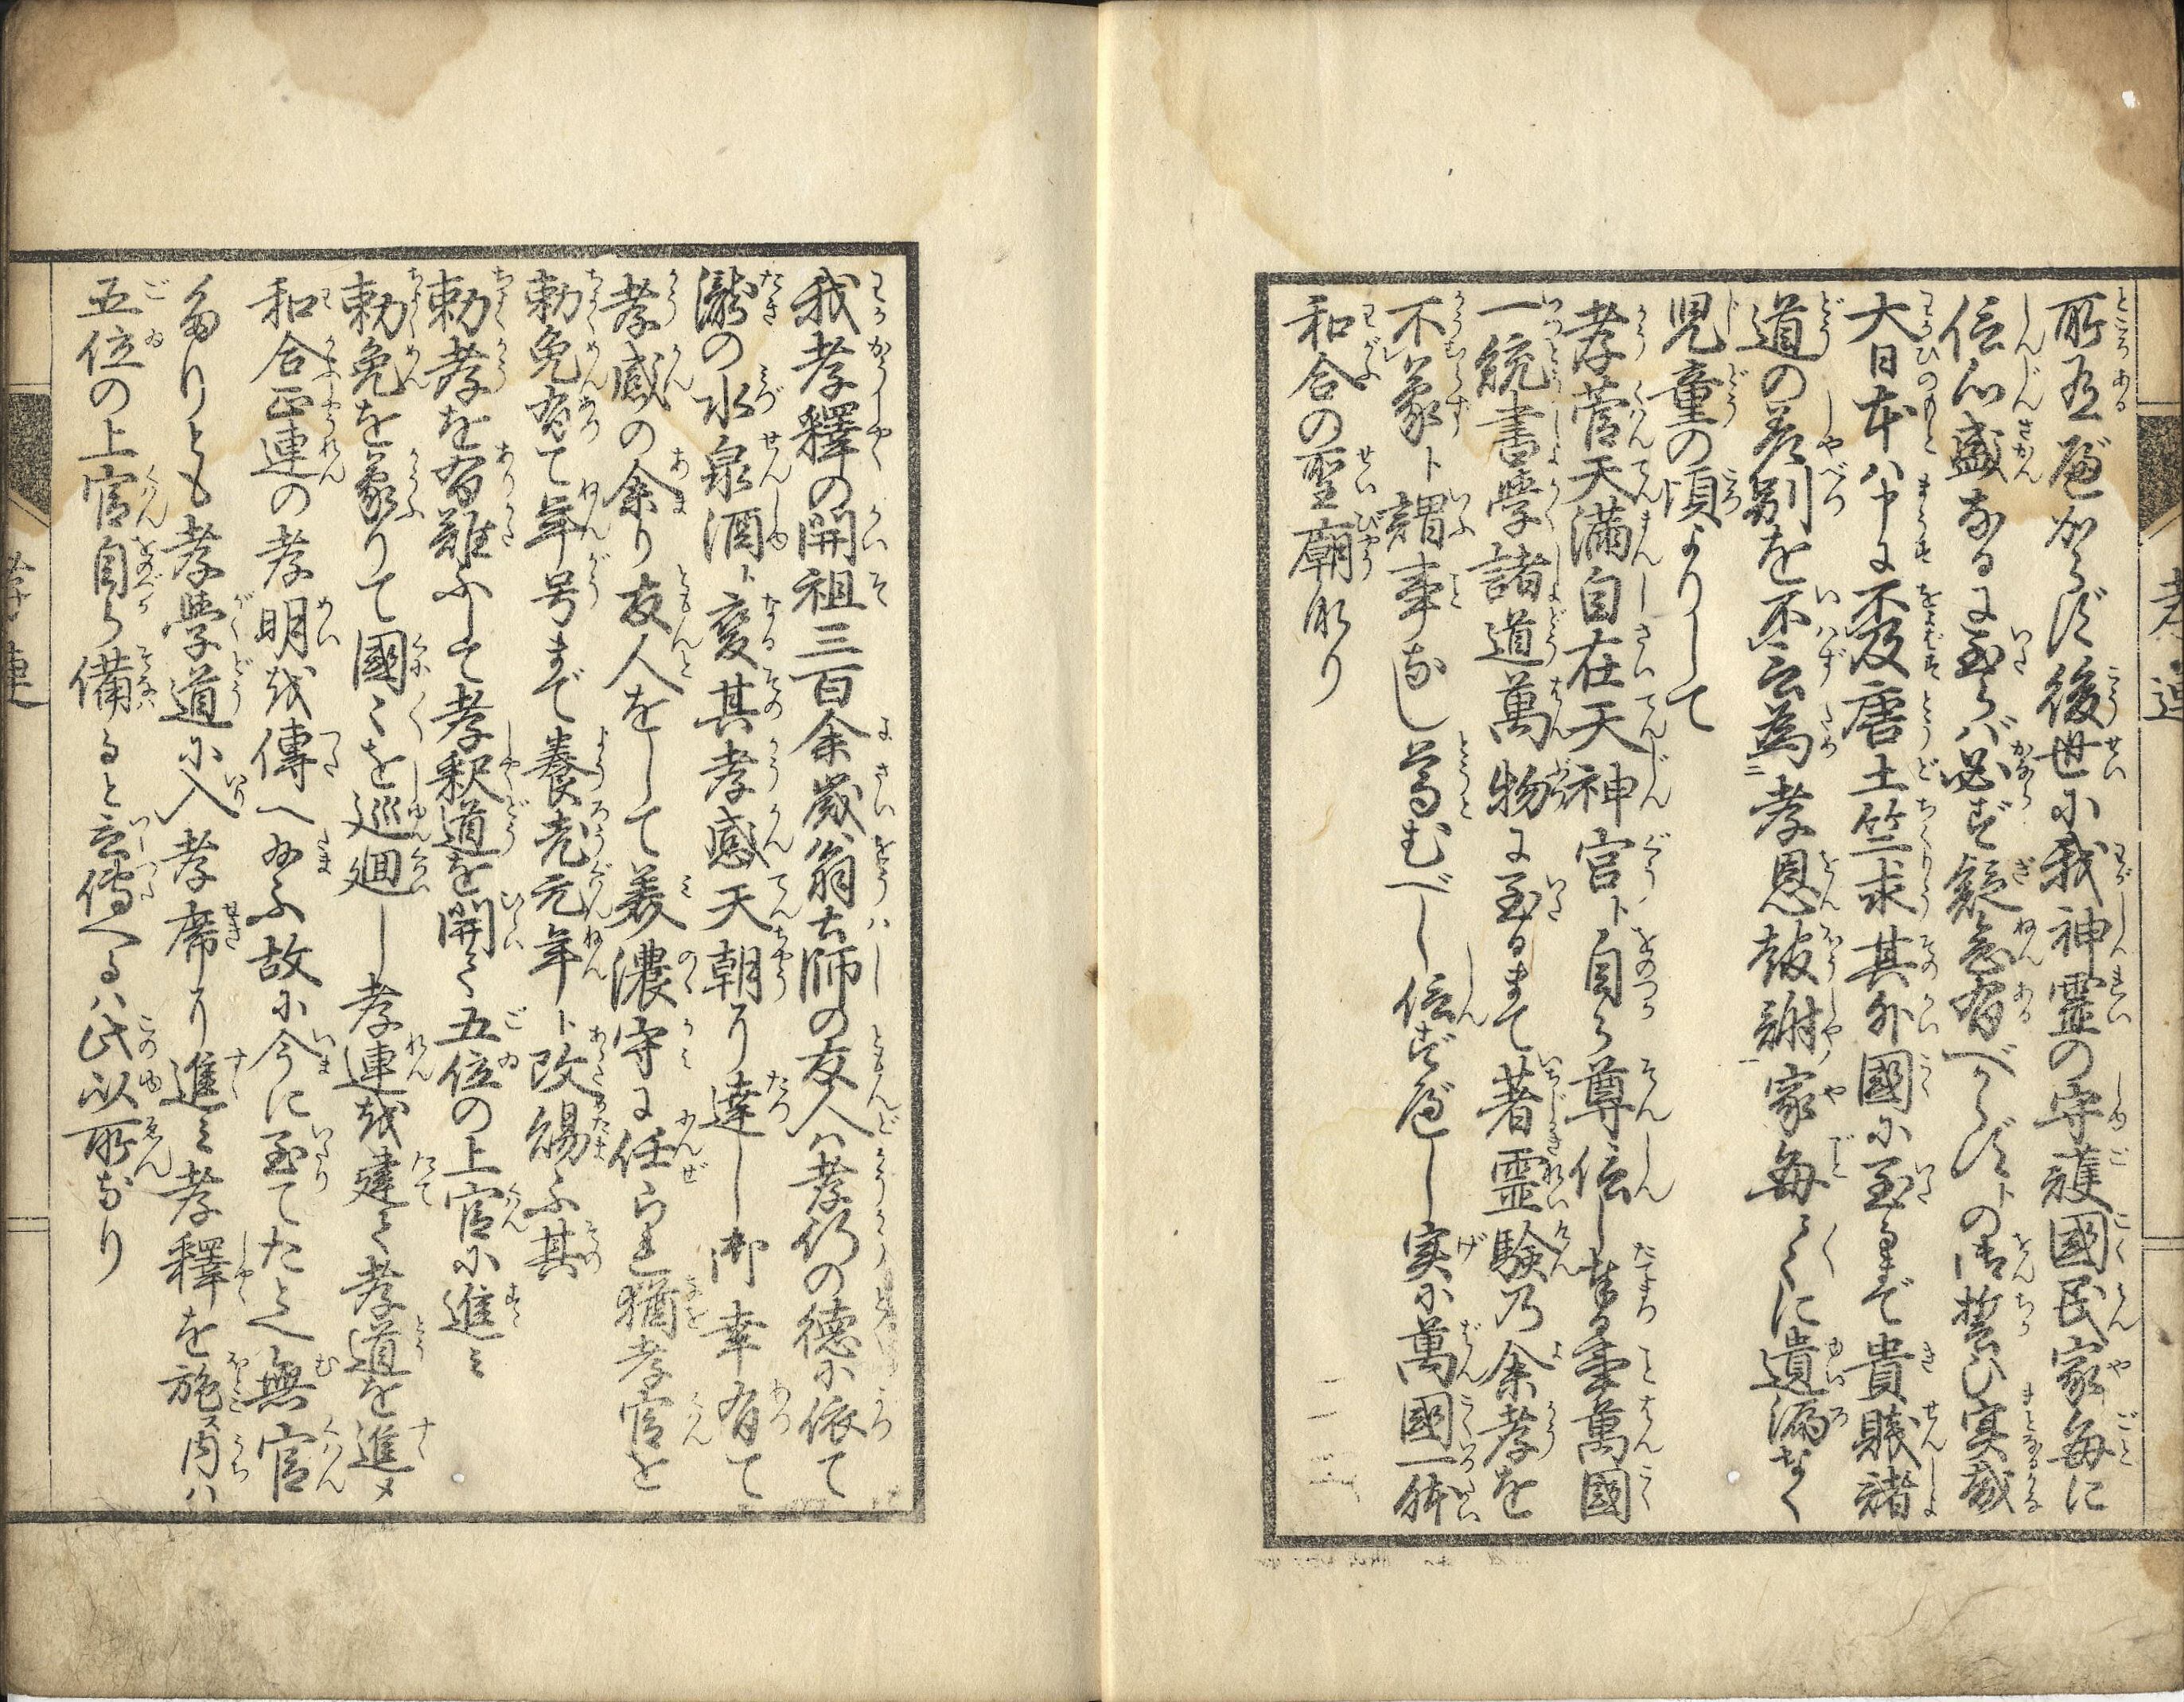 所有べからず後世に我神霊の守護國民家毎に
信心盛なるに至らバ必ず疑念有べからずトの御誓ひ実哉
大日本ハ申に不及唐土竺求其外國に至るまで貴賎諸
道の差別を不云為孝恩報謝家毎〻に遺漏なく
児童の頃よりして
孝菅天満自在天神宮ト自ら尊信し奉る事萬國
一統書學諸道萬物に至るまて著霊験乃余孝を
不蒙ト謂事なし尊むべし信ずべし実に萬國一躰
和合の聖廟なり
我孝釋の開祖三百余歳翁七師の友人ハ孝行の徳に依て
瀧の水泉酒ト変其孝感天朝に達し御幸有て
孝感の余り友人をして美濃守に任らる猶孝官を
勅免有て年号まで養老元年ト改賜ふ其
勅孝を有難ふして孝釈道を開て五位の上官に進ミ
勅免を蒙りて國〻を巡廻し孝連を建て孝道を進メ
和合正連の孝明を傳へ給ふ故に今に至てたとへ無官
たりとも孝學道に入孝席に進ミ孝釋を施ス内ハ
五位の上官自ら備ると云傳へるハ此以所なり
孝連